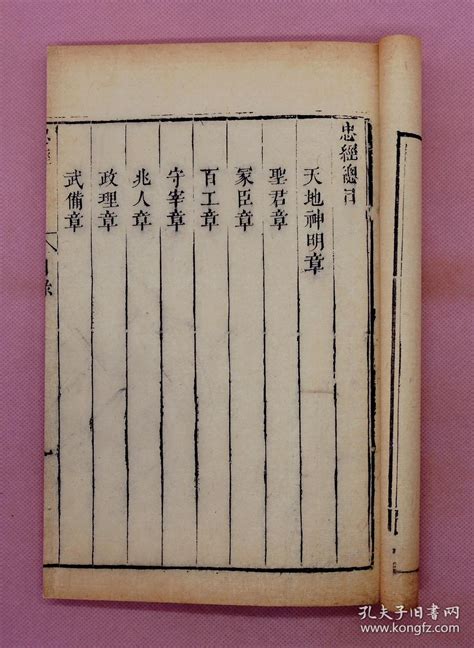 忠經總目
天地神明章
聖君章
冢臣章
百工章
守宰章
兆人章
政理章
武備章
孔夫子旧书网
www.kongfz.com